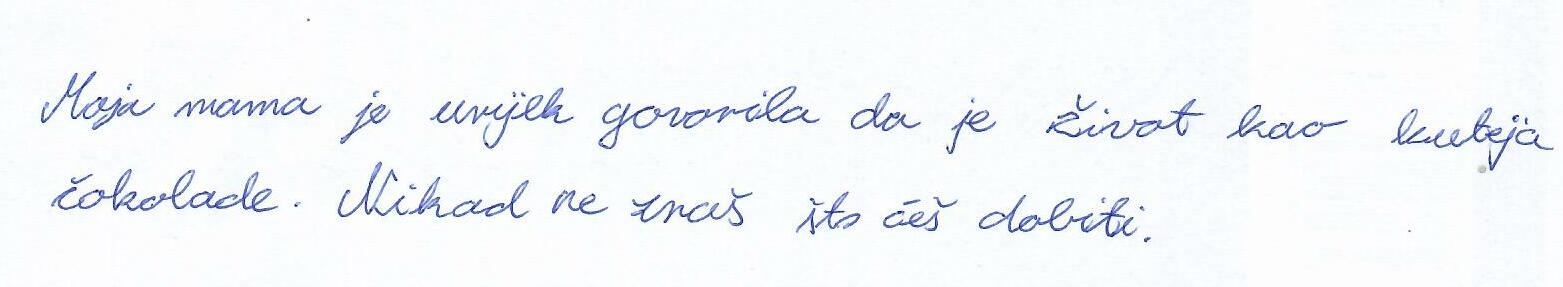 Moja mama je uvijek govorila da je život kao kutija
čokolade. Nikad ne znaš što ćeš dobiti.